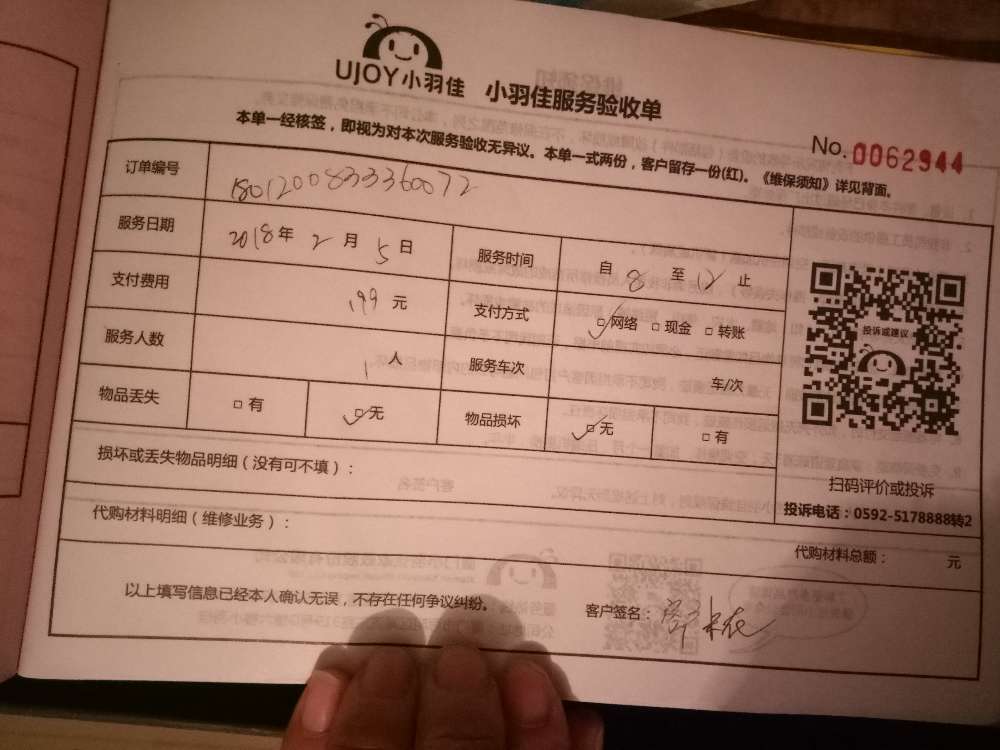 UJOY小羽佳 小羽佳服务验收单
本单一经核签，即视为对本次服务验收无异议。本单一式两份，客户留存一份(红)。《维保须知》详见背面。
No. 0062944
订单编号 18012008333360072
服务日期 2018年2月5日 服务时间 自8至12止
支付费用 199元 支付方式 □网络 □现金 □转账
服务人数 1人 服务车次 车/次
物品丢失 □有 □无 物品损坏 □无 □有
投诉或建议
扫码评价或投诉
投诉电话：0592-5178888转2
损坏或丢失物品明细（没有可不填）：
代购材料明细（维修业务）：
代购材料总额： 元
以上填写信息已经本人确认无误，不存在任何争议纠纷。
客户签名：